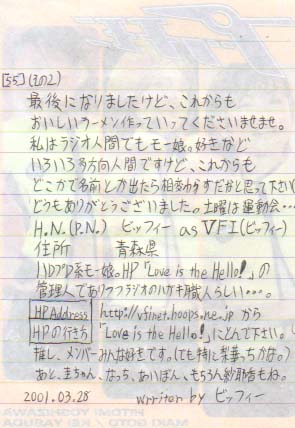 [55](その2)
最後になりましたけど、これからも
おいしいラーメン作っていってくださいませませ。
私はラジオ人間でもモー娘。好きなど
いろいろ方向人間ですけど、これからも
どこかで名前とか出たら相変わらずだなと思って下さい(
どうもありがとうございました。土曜は運動会…
H.N.(P.N.) ビッフィー as VFI(ビッフィー)
住所 青森県
ハロプロ系モー娘。HP「Love is the Hello!」の
管理人でありつつラジオのハガキ職人らしい…。
HP Address http://vfinet.hoops.ne.jp から
HPの行き方 「Love is the Hello!」にとんで下さい。
推し、メンバーみんな好きです。(でも特に梨華っちかな。)
あと、圭ちゃん、なっち、あいぼん、もちろん紗耶香もね。
2001.03.28 Wrriter by ビッフィー
HITOMI YOSHIZAWA
MAKI GOTO / KEI YASUDA